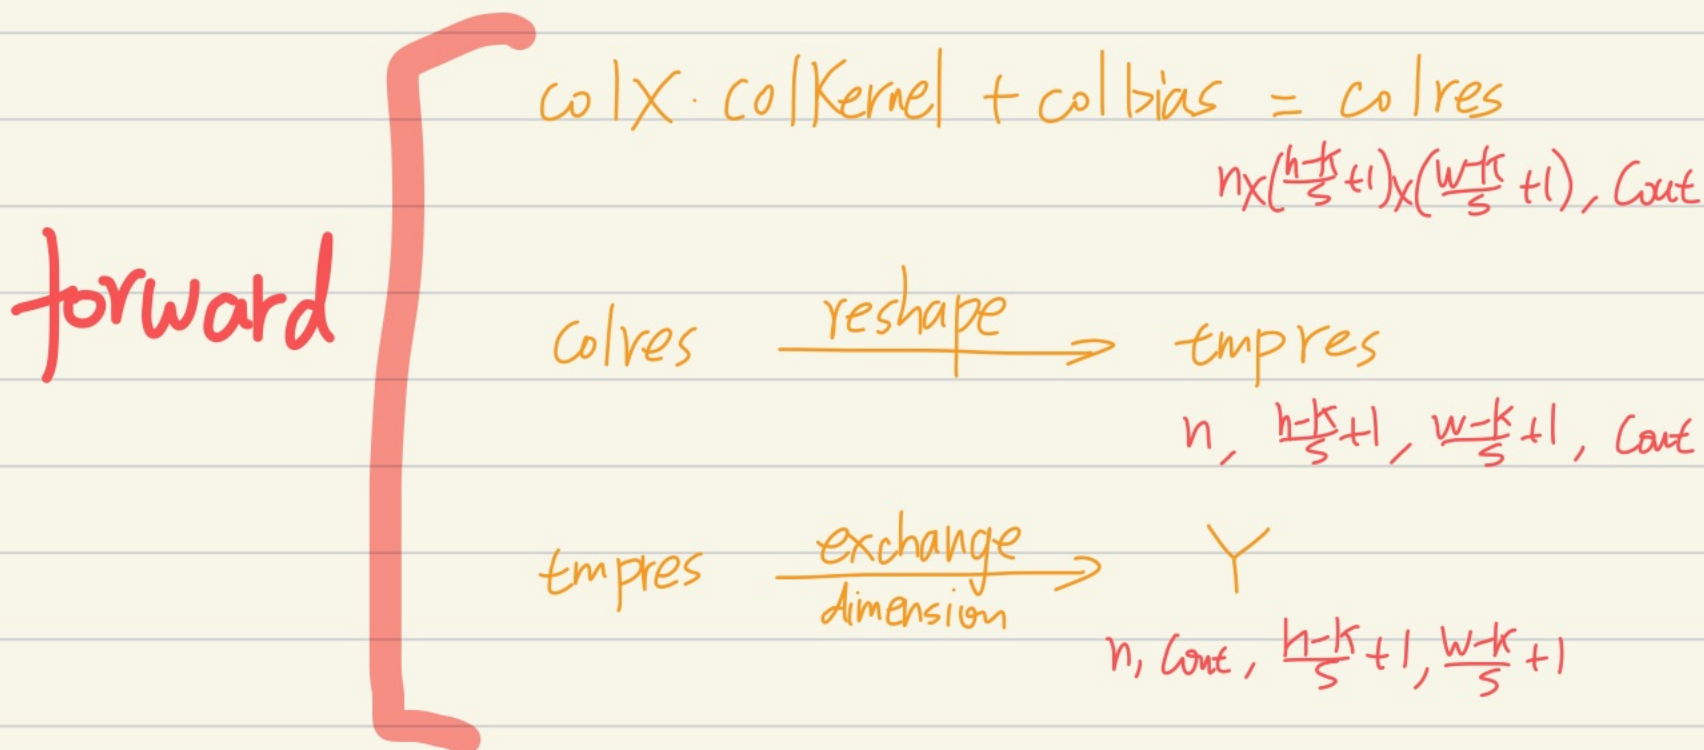 forward
colX · colKernel + colbias = colres
n×(h-k/s +1)×(w-k/s +1), Cout
colres reshape tmpres
n, h-k/s +1, w-k/s +1, Cout
tmpres exchange dimension Y
n, Cout, h-k/s +1, w-k/s +1